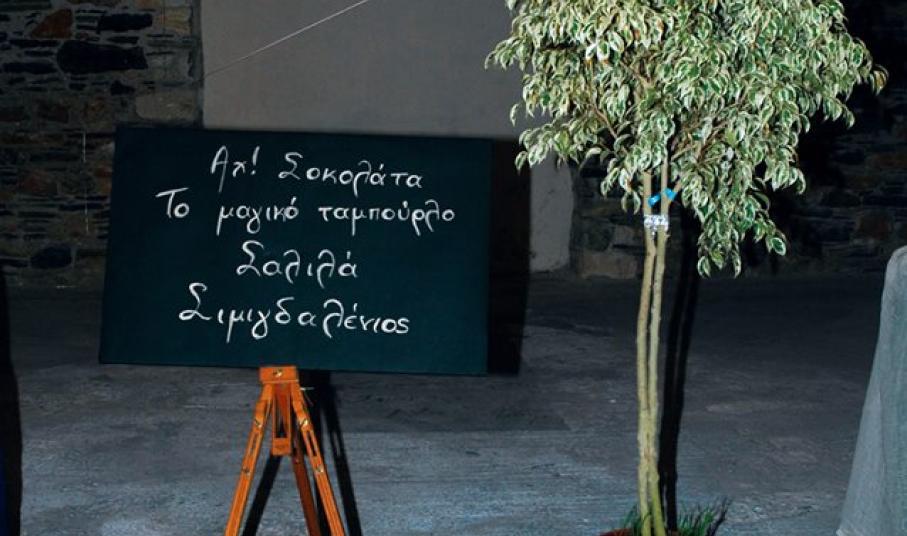 Αχ! Σοκολάτα
Το μαγικό ταμπούρλο
Σαλιλά
Σιμιγδαλένιος